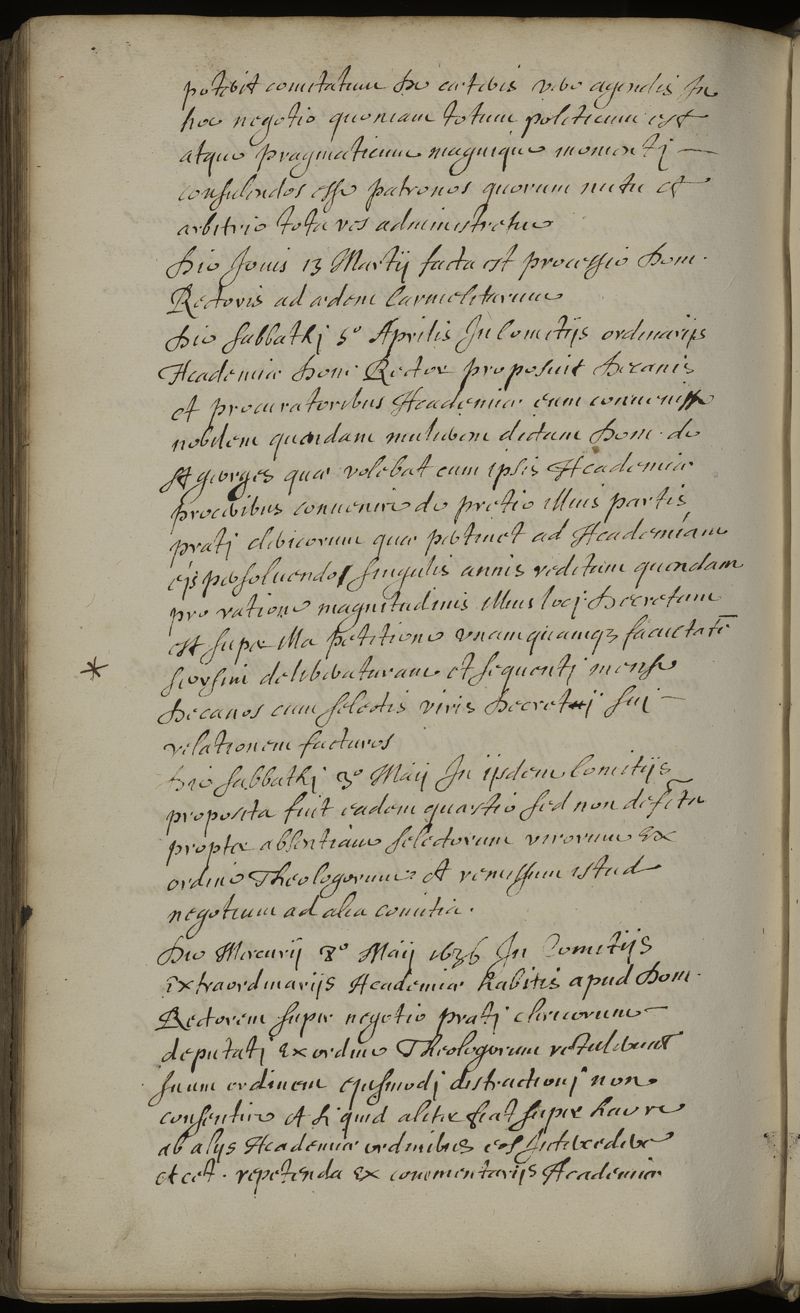 poterit comitatum De ceteris vero agendis In
hoc negotio quoniam totum politicum est
atque pragmaticum magnique momentj
consulendos esse patronos quorum nutu et
arbitrio tota res administretur
Die Jovis 13 Martij facta est processio Dom.
Rectoris ad ædem Carmelitarum
Die Sabbathj 5º Aprilis In Comitijs ordinarijs
Academiæ Domi Rector proposuit Decanis
et procuratoribus Academiæ eum convenisse
nobilem quandam mulierem dictam Dom. de
St georges quæ volebat cum ipsis Academiæ
proceribus convenire de pretio illius partis
pratj clericorum quæ pertinet ad Academiam
eis persoluendo singulis annis reditum quendam
pro ratione magnitudinis illius locj Decretum
est super illa petitione vnamquamq3 facultatē
seorsim deliberaturam et sequentj mense
* Decanos cum selectis viris Decretj suj
relationem facturos
Die Sabbathj 3º Maij In ijsdem Comitijs
proposita fuit eadem quæstio sed non defīta
propter absentiam selectorum virorum Ex
ordine Theologorum et remissum istud
negotium ad alia comitia.
Die Mercurij 8º Maij 1636 In Comitijs
Extraordinarijs Academiæ habitis apud Dom.
Rectorem super negotio pratj clericorum
deputatj Ex ordine Theologorum retulerunt
suum ordinem ejusmodj distractionj non
consentire Et si quid aliter fiat super hac re
ab alijs Academiæ ordinibus eos Intercedere
et cet. repetenda Ex commentarijs Academiæ